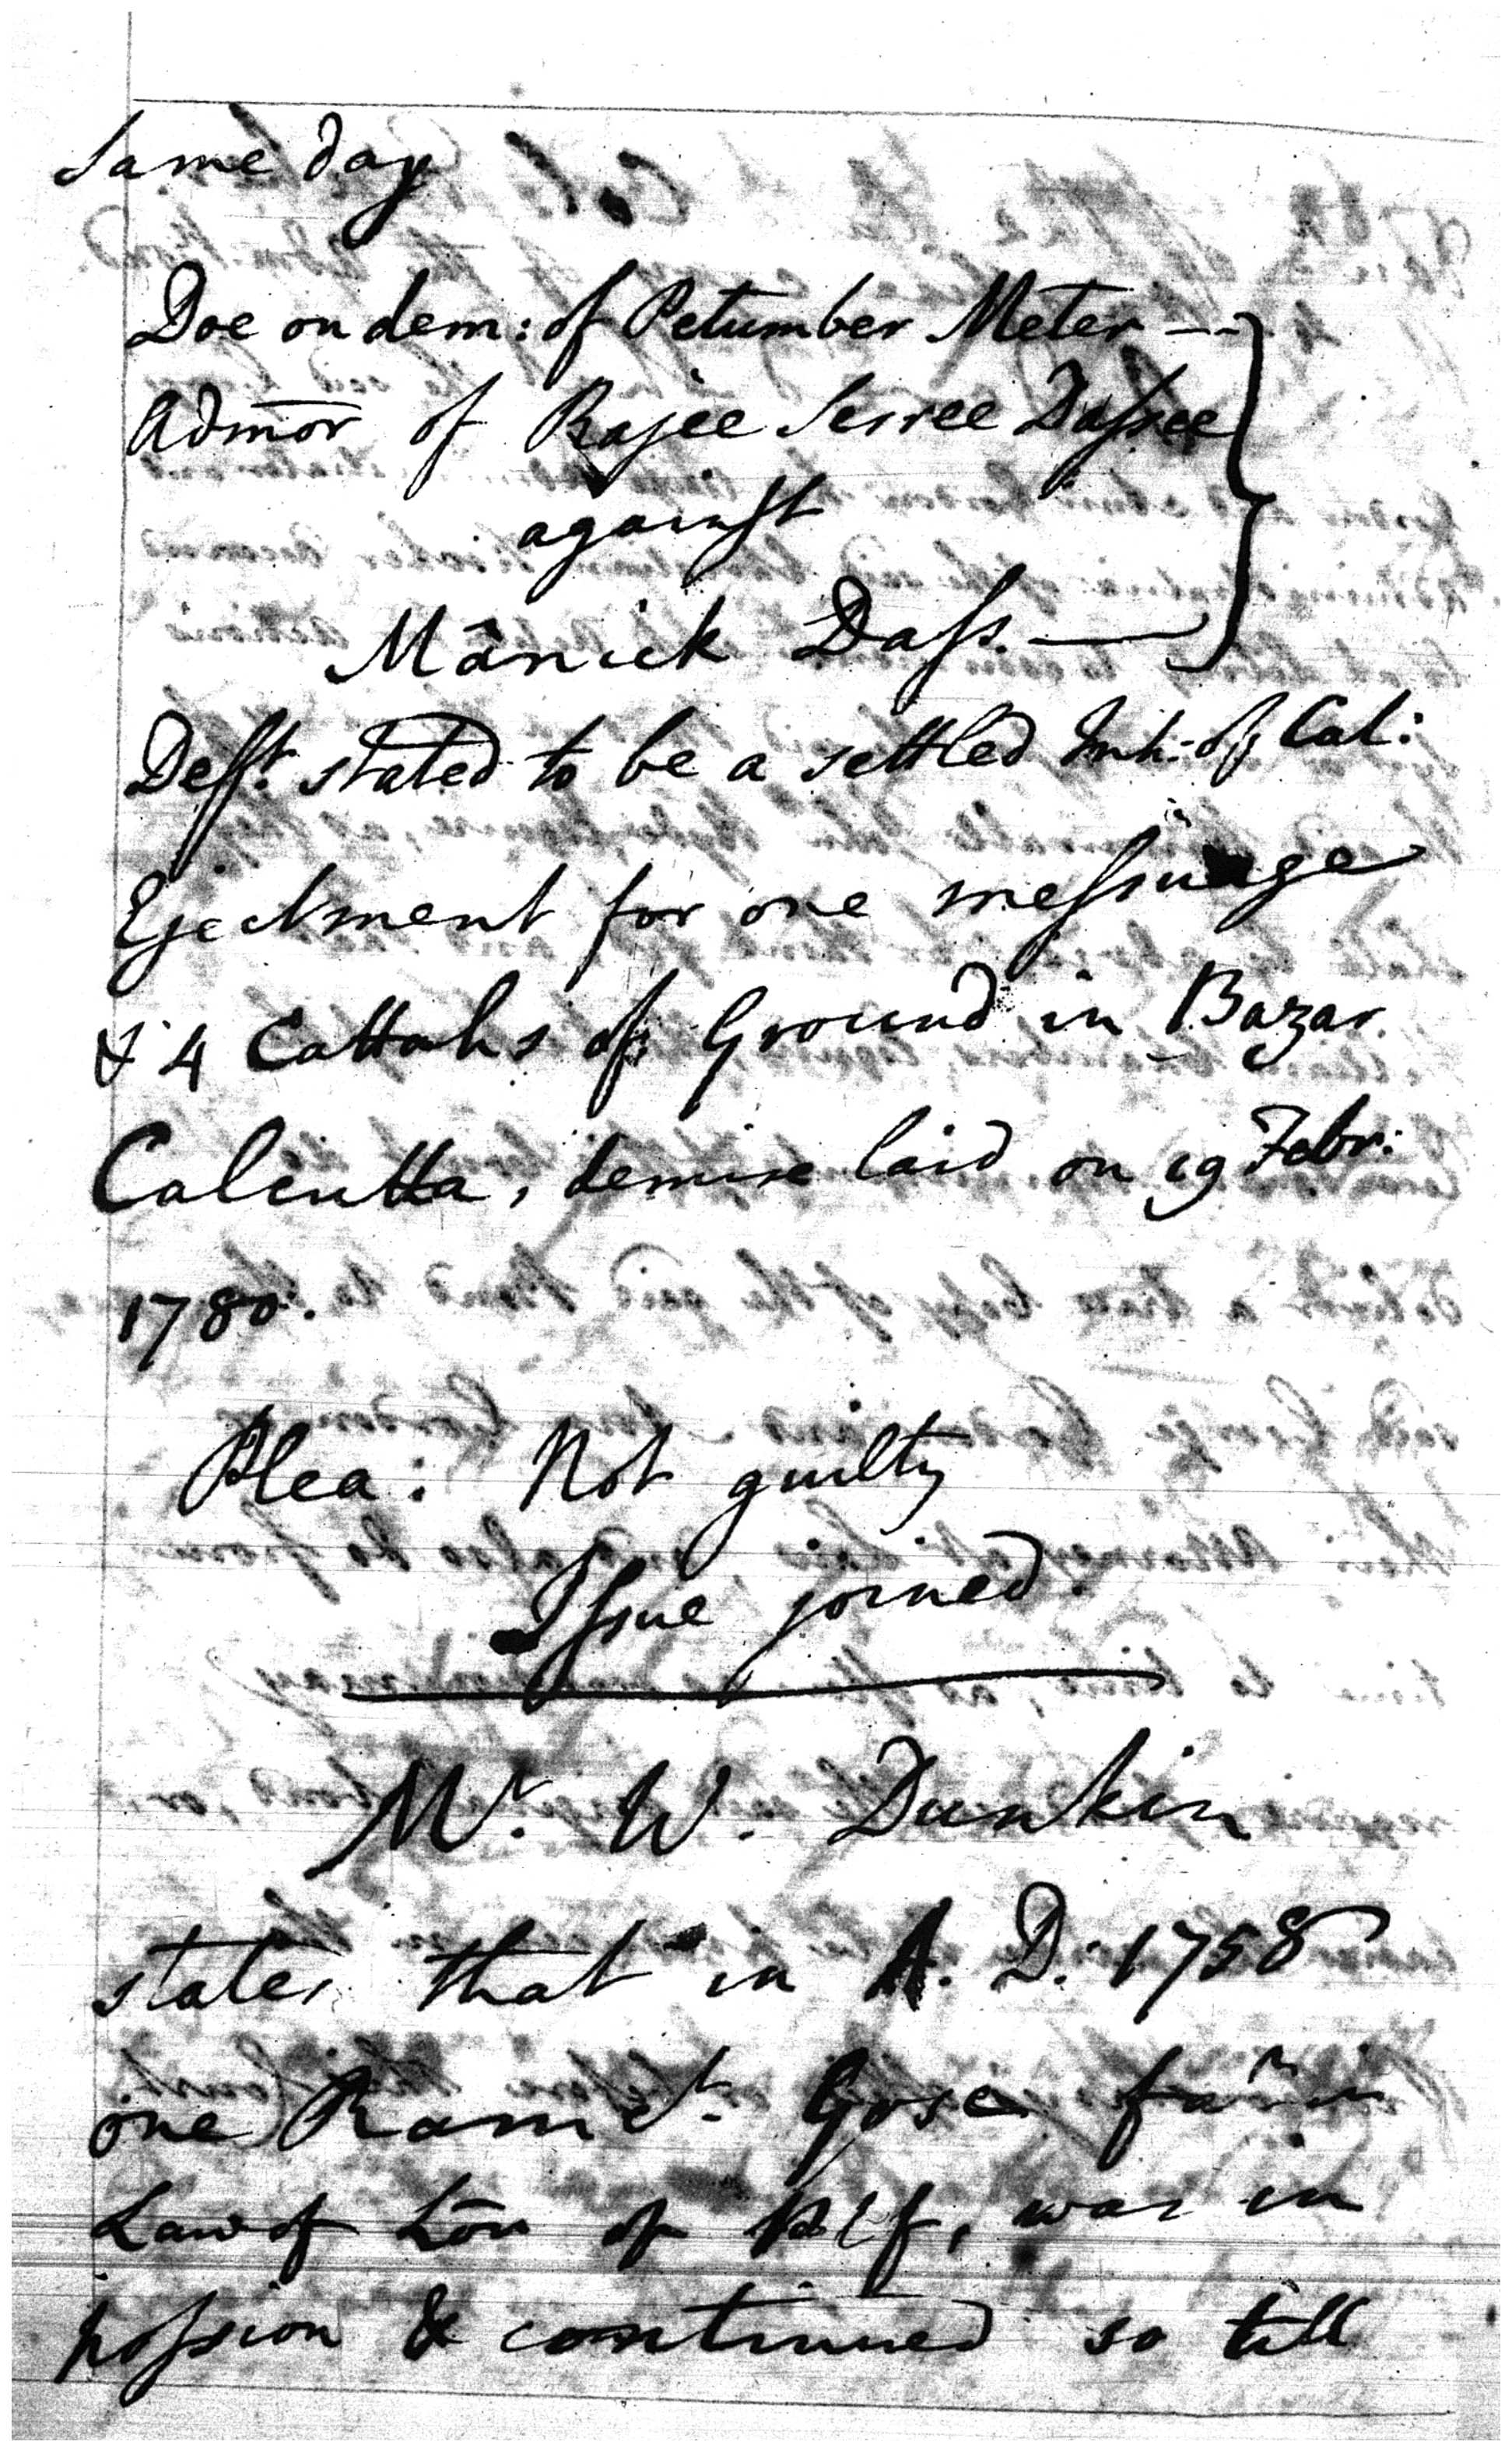 Same day
Doe on dem: of Petumber Meter --
Admor of Rajee Serree Dassee
against
Mânick Dass. —
Deft. stated to be a settled Inh: of Cal:
Ejectment for one messuage
& 4 Cattahs of Ground in Bazar
Calcutta, demise laid on 19 Febr:
1780.
Plea: Not guilty
Issue joined
Mr. W. Dunkin
states that in A. D. 1758
one Ramct. Gose far in
Law of of Plf, was in
possion & continued so till